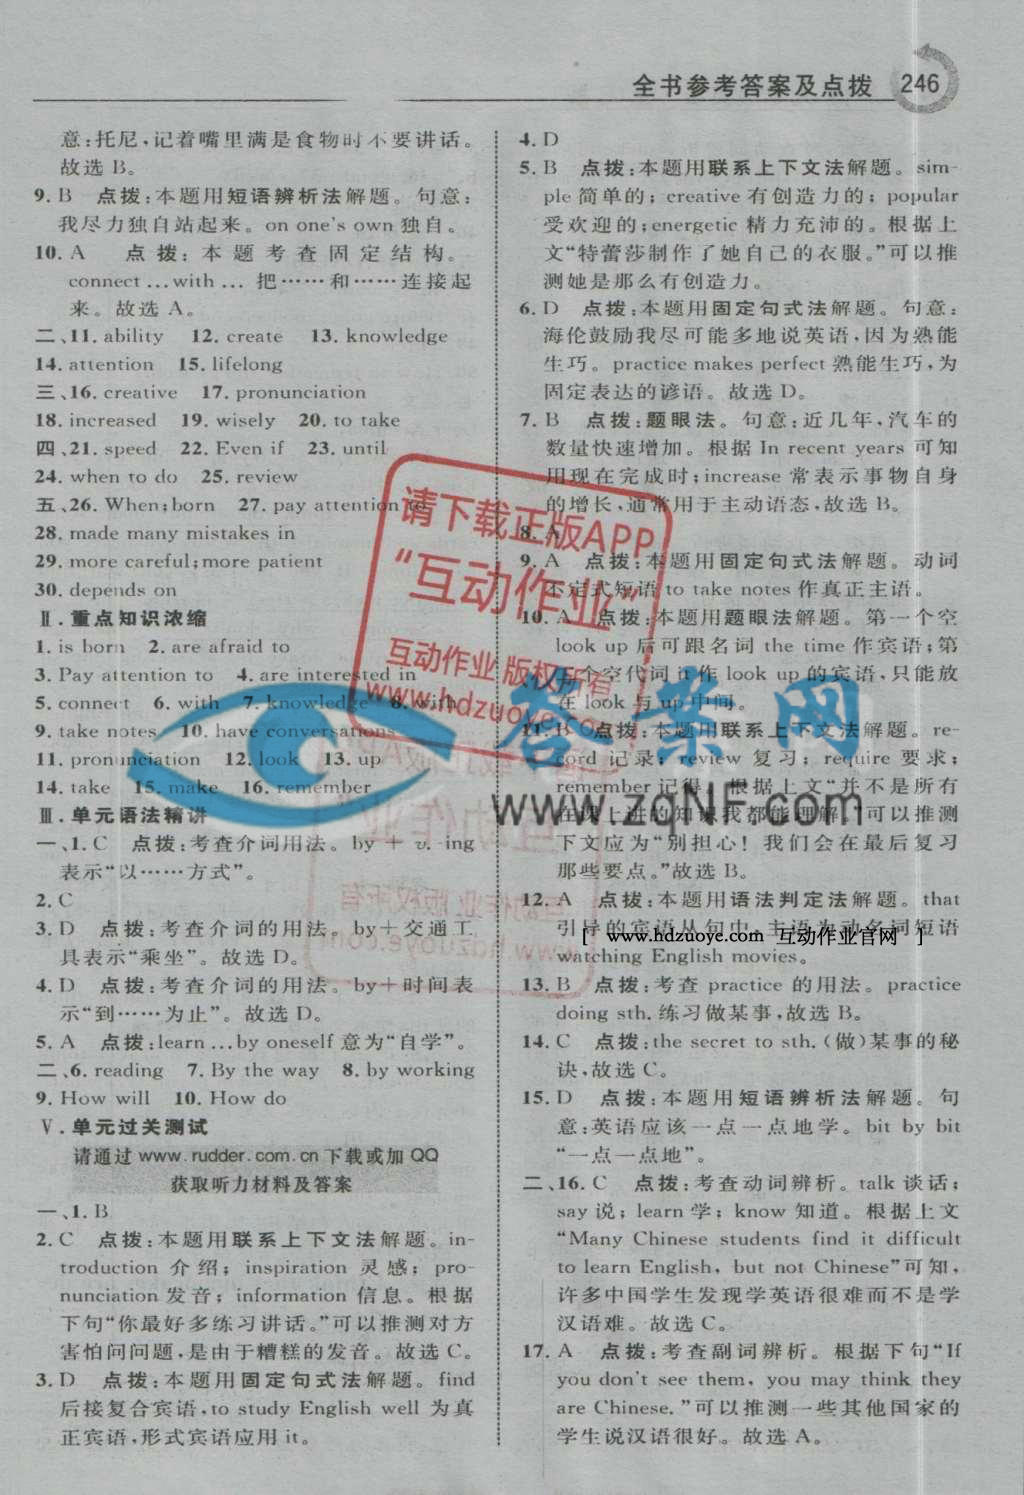 全书参考答案及点拨 246
意:托尼,记着嘴里满是食物时不要讲话。
故选 B。
9. B 点拨:本题用短语辨析法解题。句意:
我尽力独自站起来。on one's own 独自。
10. A 点拨:本题考查固定结构。
connect…with… 把……和……连接起
来。故选 A。
二、11. ability 12. create 13. knowledge
14. attention 15. lifelong
三、16. creative 17. pronunciation
18. increased 19. wisely 20. to take
四、21. speed 22. Even if 23. until
24. when to do 25. review
五、26. When;born 27. pay attention to
28. made many mistakes in
29. more careful;more patient
30. depends on
Ⅱ. 重点知识浓缩
1. is born 2. are afraid to
3. Pay attention to 4. are interested in
5. connect 6. with 7. knowledge 8. with
9. take notes 10. have conversations
11. pronunciation 12. look 13. up
14. take 15. make 16. remember
Ⅲ. 单元语法精讲
一、1. C 点拨:考查介词用法。by + v. -ing
表示“以……方式”。
2. C
3. D 点拨:考查介词的用法。by+交通工
具表示“乘坐”。故选 D。
4. D 点拨:考查介词的用法。by+时间表
示“到……为止”。故选 D。
5. A 点拨:learn…by oneself 意为“自学”。
二、6. reading 7. By the way 8. by working
9. How will 10. How do
Ⅴ. 单元过关测试
请通过 www. rudder. com. cn 下载或加 QQ
获取听力材料及答案
一、1. B
2. C 点拨:本题用联系上下文法解题。in-
troduction 介绍;inspiration 灵感;pro-
nunciation 发音;information 信息。根据
下句“你最好多练习讲话。”可以推测对方
害怕问问题,是由于糟糕的发音。故选 C。
3. D 点拨:本题用固定句式法解题。find
后接复合宾语,to study English well 为真
正宾语,形式宾语应用 it。
4. D
5. B 点拨:本题用联系上下文法解题。sim-
ple 简单的;creative 有创造力的;popular
受欢迎的;energetic 精力充沛的。根据上
文“特蕾莎制作了她自己的衣服。”可以推
测她是那么有创造力。
6. D 点拨:本题用固定句式法解题。句意:
海伦鼓励我尽可能多地说英语,因为熟能
生巧。practice makes perfect 熟能生巧,为
固定表达的谚语。故选 D。
7. B 点拨:题眼法。句意:近几年,汽车的
数量快速增加。根据 In recent years 可知
用现在完成时;increase 常表示事物自身
的增长,通常用于主动语态,故选 B。
8. A
9. A 点拨:本题用固定句式法解题。动词
不定式短语 to take notes 作真正主语。
10. A 点拨:本题用题眼法解题。第一个空
look up 后可跟名词 the time 作宾语;第
二个空代词 it 作 look up 的宾语,只能放
在 look 与 up 中间。
11. B 点拨:本题用联系上下文法解题。re-
cord 记录;review 复习;require 要求;
remember 记得。根据上文“并不是所有
在课上讲的知识我都能理解。”可以推测
下文应为“别担心!我们会在最后复习
那些要点。”故选 B。
12. A 点拨:本题用语法判定法解题。that
引导的宾语从句中,主语为动名词短语
watching English movies。
13. B 点拨:考查 practice 的用法。practice
doing sth. 练习做某事,故选 B。
14. C 点拨:the secret to sth. (做)某事的秘
诀,故选 C。
15. D 点拨:本题用短语辨析法解题。句
意:英语应该一点一点地学。bit by bit
“一点一点地”。
二、16. C 点拨:考查动词辨析。talk 谈话;
say 说;learn 学;know 知道。根据上文
“Many Chinese students find it difficult
to learn English, but not Chinese”可知,
许多中国学生发现学英语很难而不是学
汉语难。故选 C。
17. A 点拨:考查副词辨析。根据下句“If
you don't see them, you may think they
are Chinese.”可以推测一些其他国家的
学生说汉语很好。故选 A。
请下载正版APP
“互动作业”
互动作业 版权所有
www.hdzuoye.com
答案网
www.zqNF.com
[ www.hdzuoye.com 互动作业官网 ]